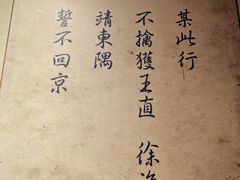 某此行
不擒獲王直 徐
靖東隅
誓不回京